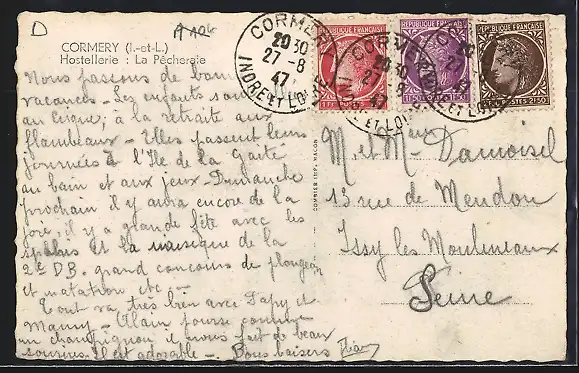 D
CORMERY (I.-et-L.)
Hostellerie : La Pêcheraie
Nous passons de bonnes
vacances - Les enfants sont
au Cirque, à la retraite aux
flambeaux - Elles passent leurs
journées à l'Ile de la Gaité
au bain et aux jeux - Dimanche
prochain il y aura encore de la
joie, il y a grande fête avec les
spahis et la musique de la
2e D.B. grand concours de plongeon
et natation etc. -
Tout va très bien avec Papy et
Mamy - Alain pousse comme
un champignon il nous fait de beaux
sourires. Il est adorable - Bons baisers
CORMERY
20 30
27 - 8
47
INDRE ET LOIRE
REPUBLIQUE FRANÇAISE
REPUBLIQUE FRANÇAISE
REPUBLIQUE FRANÇAISE
POSTES 2F50
COMBIER IMP. MACON
M. et Mme Damoisel
13 rue de Meudon
Issy les Moulineaux
Seine